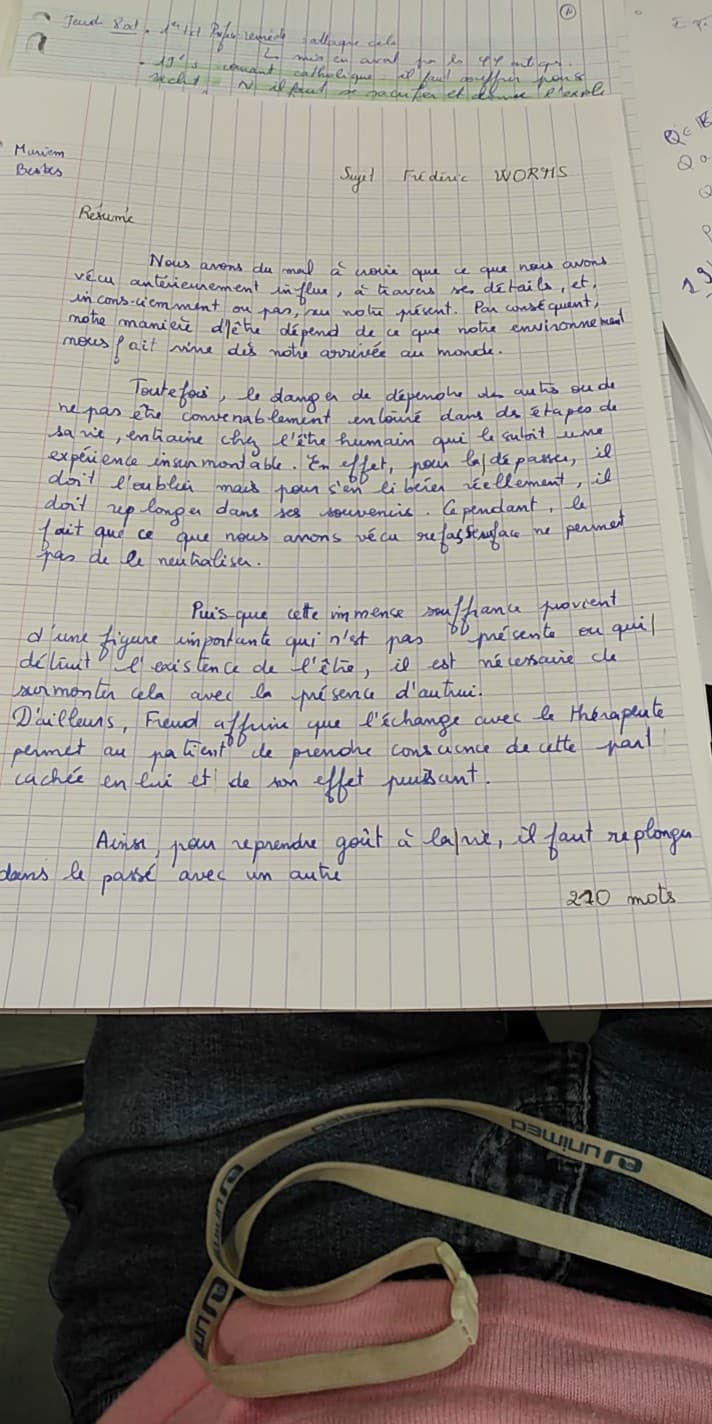 Jeudi 8 oct.
courant catholique il faut souffrir pour
il faut se sacrifier et donner l'exemple
Mariem
Sujet Frédéric WORMS
Résumé
Nous avons du mal à croire que ce que nous avons
vécu antérieurement influe, à travers ses détails, et,
incons-ciemment ou pas, sur notre présent. Par conséquent,
notre manière d'être dépend de ce que notre environnement
nous fait vivre dès notre arrivée au monde.
Toutefois, le danger de dépendre des autres ou de
ne pas être convenablement entouré dans des étapes de
sa vie, entraine chez l'être humain qui le subit une
expérience insurmontable. En effet, pour la dépasser, il
doit l'oublier mais pour s'en libérer réellement, il
doit replonger dans ses souvenirs. Cependant, le
fait que ce que nous avons vécu refasse surface ne permet
pas de le neutraliser.
Puis-que cette immense souffrance provient
d'une figure importante qui n'est pas présente ou qui
détruit l'existence de l'être, il est nécessaire de
surmonter cela avec la présence d'autrui.
D'ailleurs, Freud affirme que l'échange avec le thérapeute
permet au patient de prendre conscience de cette part
cachée en lui et de son effet puissant.
Ainsi, pour reprendre goût à la vie, il faut replonger
dans le passé avec un autre
220 mots
unimed